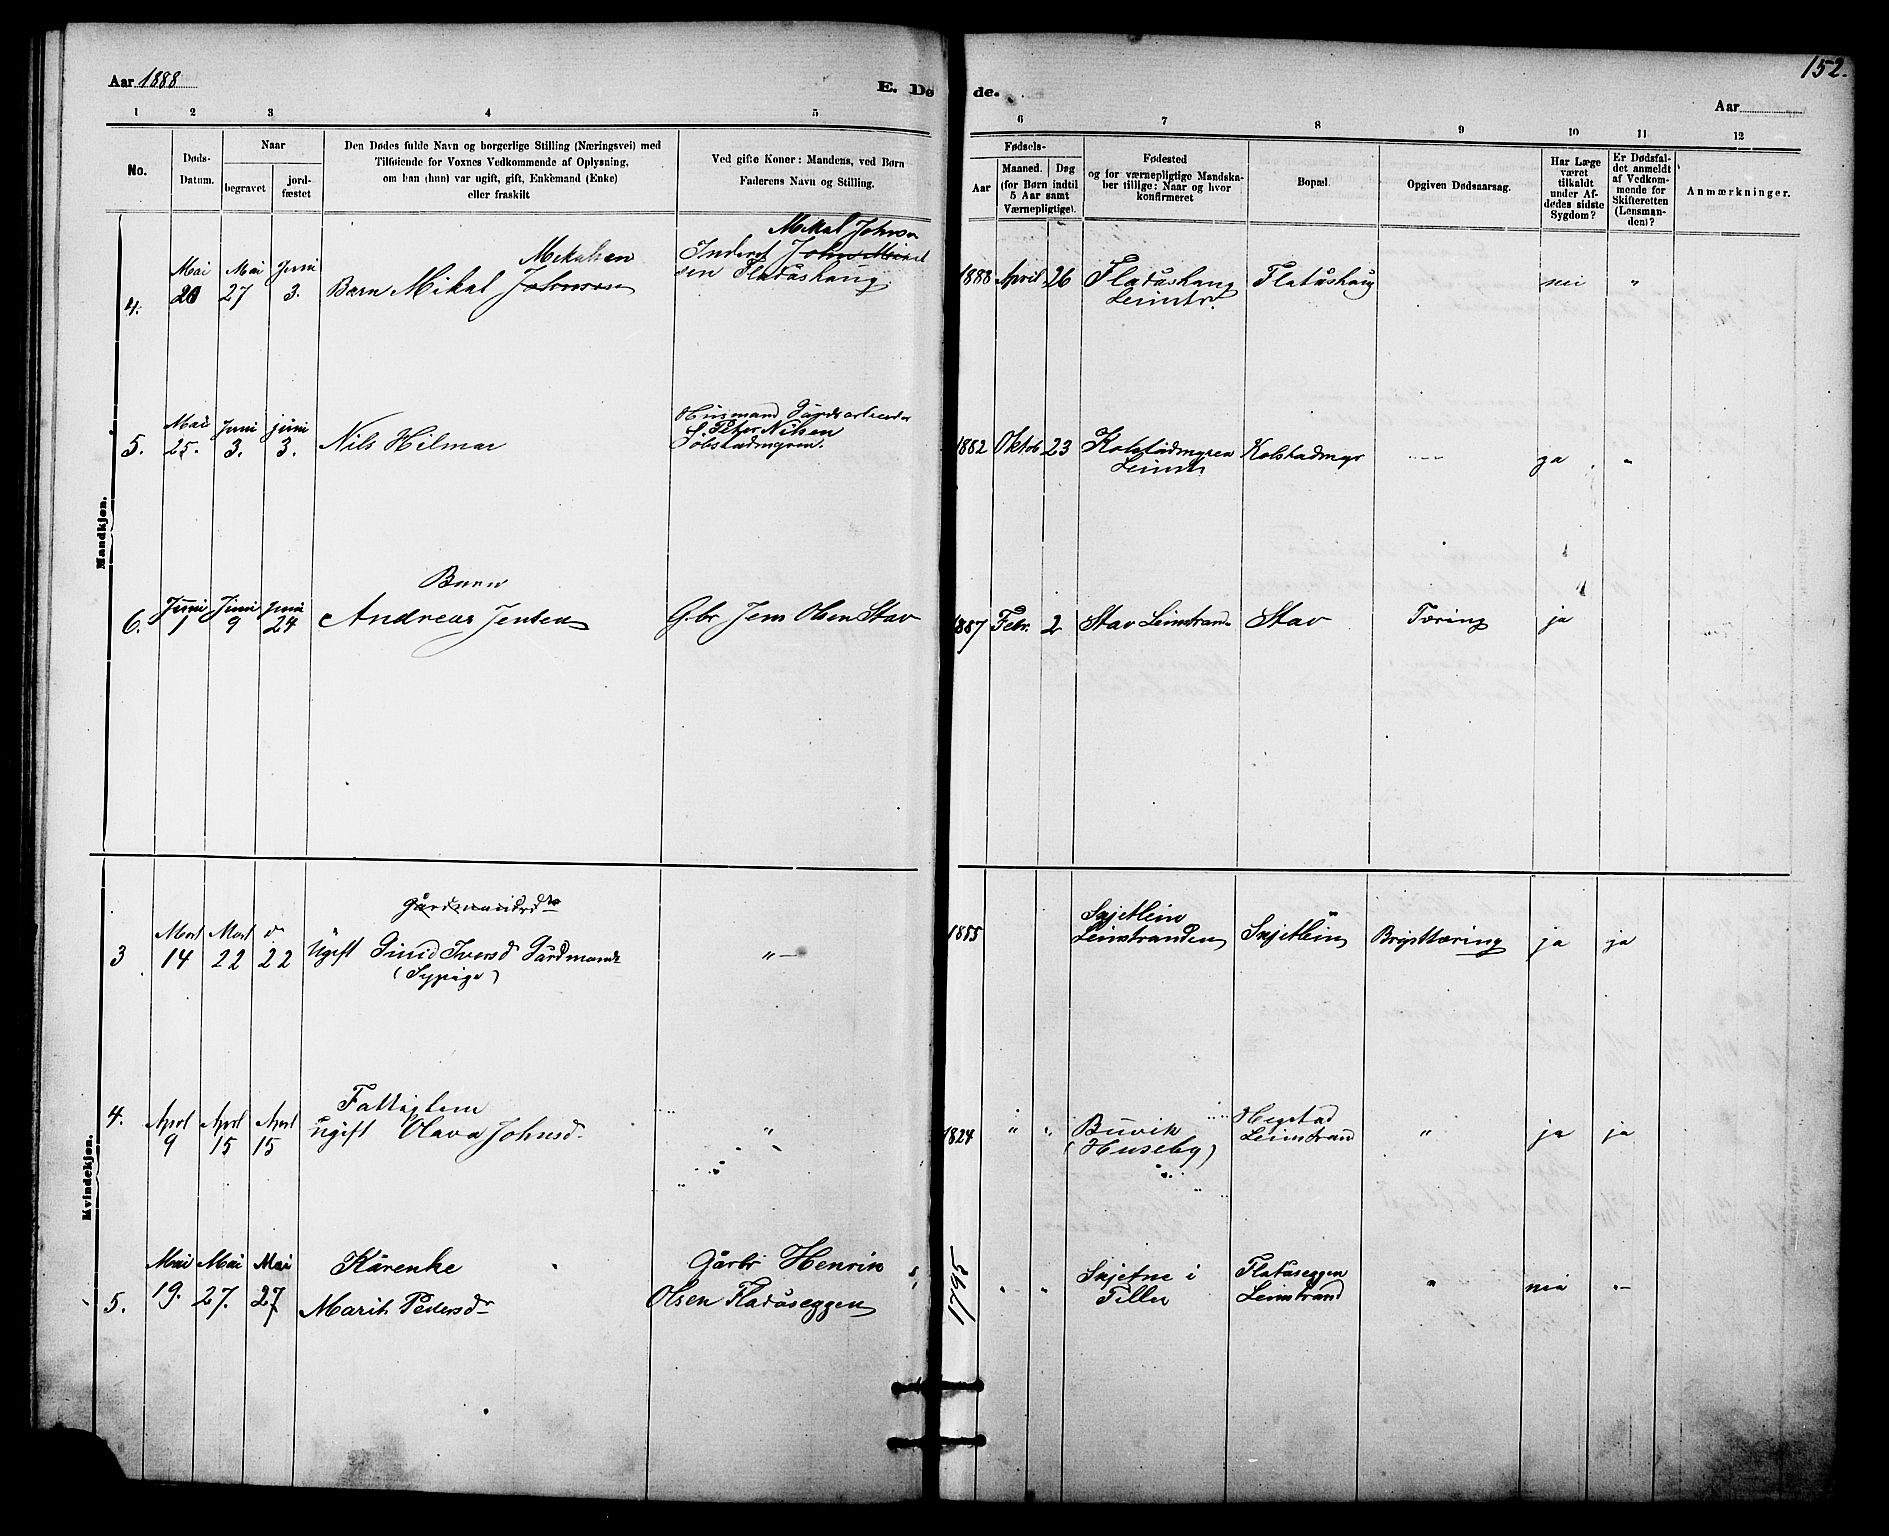 Aar 1888
E. Dø
de.
Aar
152.
1 2 3 4 5 6 7 8 9 10 11 12
No.
Døds-
Datum.
Naar
begravet
jord-
fæstet
Den Dødes fulde Navn og borgerlige Stilling (Næringsvei) med
Tilføiende for Voxnes Vedkommende af Oplysning,
om han (hun) var ugift, gift, Enkemand (Enke)
eller fraskilt
Ved gifte Koner: Mandens, ved Børn
Faderens Navn og Stilling.
Fødsels-
Aar
Maaned.
Døg
(for Børn indtil
5 Aar samt
Værnepligtige).
Fødested
og for værnepligtige Mandska-
ber tillige: Naar og hvor
konfirmeret
Bopæl.
Opgiven Dødsaarsag.
Har Læge
været
tilkaldt
under Af-
dødes sidste
Sygdom?
Er Dødsfal-
det anmeldt
af Vedkom-
mende for
Skifteretten
(Lensman-
den)?
Anmærkninger.
Mandkjøn.
Mikal Johnsen
Mekalsen
Inderst John Mikal
sen Flatåshaug
4. Mai 20 Mai 27 Juni 3. Barn Mikal Johnsen
1888 April 26 Flatåshaug Flatåshaug nei "
Leinstr.
Husmand Gårdsarbeider
Peter Nilsen
5. Mai 25. Juni 3. juni 3. Nils Hilmar
1882 Oktob 23 Kolstadmyren Kolstadmyr ja "
Leinstr
Barn
6. Juni 1 Juni 9 Juni 24 Andreas Jensen Gbr Jens Olsen Stav
1887 Febr. 2 Stav Leinstrand Stav Tæring ja
Kvindekjøn.
3 Mart 14 Mart 22 d. 22 Ugift Iversd Gårdmands
(Sypige)
" —
1855 Skjetlein
Leinstranden Skjetlein Brysttæring ja ja
4. April 9 April 15 April 15 Fattiglem
ugift Olava Johnsd. "
1824 " " Buvik
(Huseby) Hegstad
Leinstrand " ja ja
5. Mai 19. Mai 27. Mai 27 Kårenke
Marit Pedersdr
Gårbr Henrik
Olsen Flatåseggen
1795 " " Skjetne i
Tiller Flatåseggen
Leinstrand " nei "–